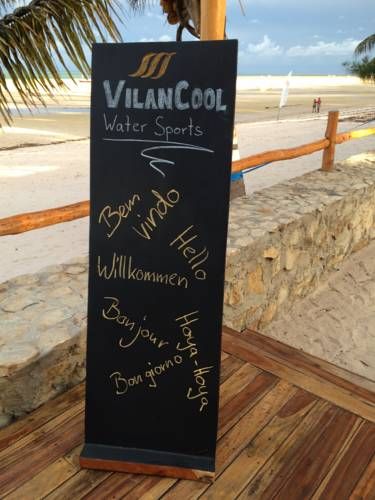 VILANCOOL
Water Sports
Bem
vindo
Hello
Willkommen
Bonjour
Hoya-Hoya
Bongiorno